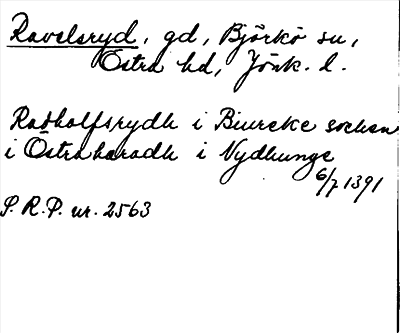 Ravelsryd, gd, Björkö sn,
Östra hd, Jönk. l.
Radholfsrydh i Biurcke sochen
i Östraharadh i Nydhunge
6/7 1391
S. R. P. nr. 2563